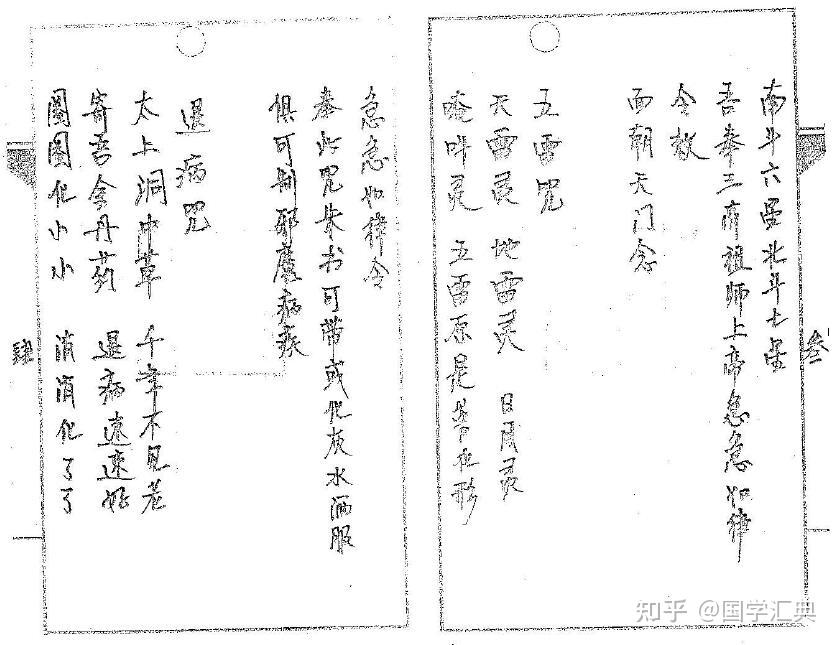 叁
南斗六星北斗七星
吾奉三商祖师上帝急急如律
令敕
面朝天门念
五雷咒
天雷灵 地雷灵 日月灵
唵吽灵 五雷原是 化形
急急如律令
奉此咒朱书可带或化灰水酒服
俱可制邪魔病疾
退病咒
太上洞中草 千年不见老
寄吾金丹药 退病速速好
圈圈化小小 消消化了了
肆
知乎 @国学汇典